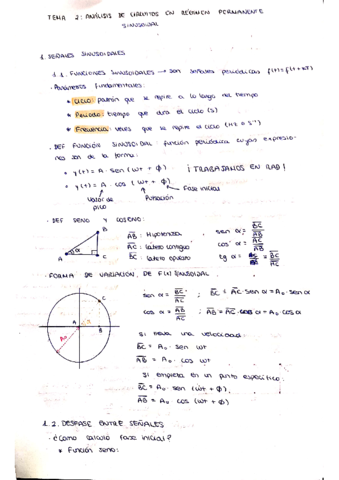 TEMA 2: ANÁLISIS DE CIRCUITOS EN RÉGIMEN PERMANENTE
SINUSOIDAL
1. SEÑALES SINUSOIDALES
1.1. FUNCIONES SINUSOIDALES → son señales periódicas f(t) = f(t + nT)
· Parámetros fundamentales:
* Ciclo: patrón que se repite a lo largo del tiempo
* Periodo: tiempo que dura el ciclo (s)
* Frecuencia: veces que se repite el ciclo (Hz = s⁻¹)
· DEF FUNCIÓN SINUSOIDAL: función periódica cuyas expresio-
nes son de la forma:
* y(t) = A · sen (ωt + ϕ) ¡TRABAJAMOS EN RAD!
* y(t) = A · cos (ωt + ϕ) → Fase inicial
Valor de pico Pulsación
· DEF SENO Y COSENO:
B
A
C
α
AB: Hipotenza
AC: cateto contiguo
BC: cateto opuesto
sen α = BC/AB
cos α = AC/AB
tg α = BC/AC
· FORMA DE VARIACIÓN DE F(t) SINUSOIDAL
A
B
C
sen α = BC/AC ; BC = AC · sen α = A₀ · sen α
cos α = AB/AC ; AB = AC · cos α = A₀ cos α
Si lleva una velocidad:
BC = A₀ · sen ωt
AB = A₀ · cos ωt
Si empieza en un punto específico:
BC = A₀ · sen (ωt + ϕ)
AB = A₀ · cos (ωt + ϕ)
1.2. DESFASE ENTRE SEÑALES
· ¿Cómo calculo fase inicial?
* Función seno: